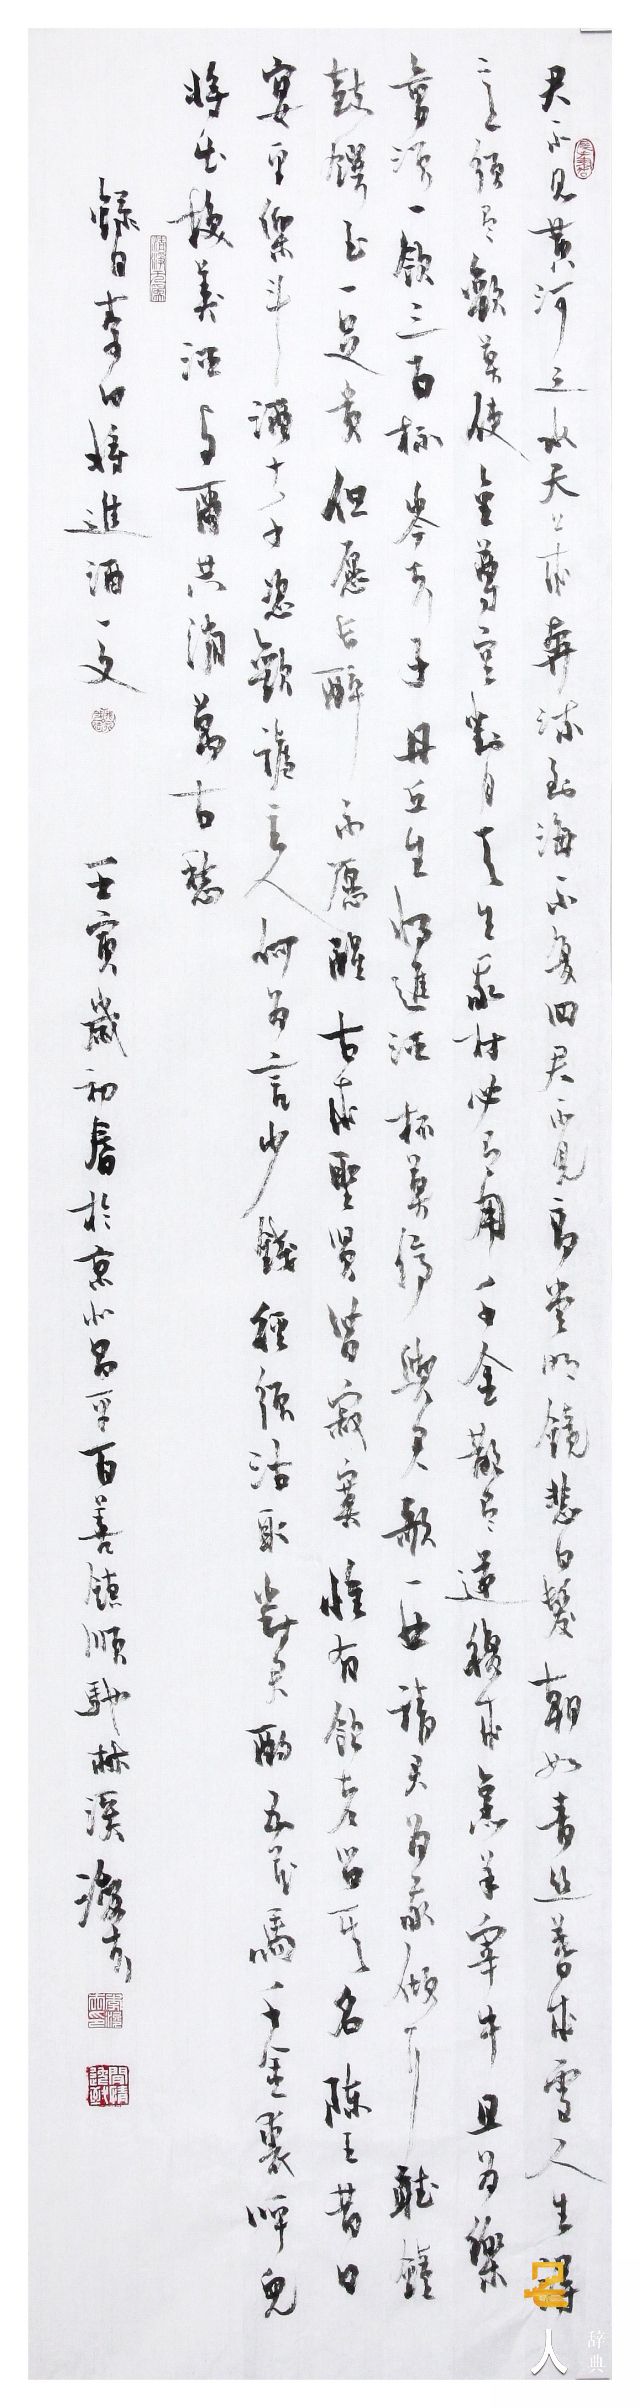 君不見黃河之水天上來奔流到海不復回君不見高堂明鏡悲白髮朝如青絲暮成雪人生得
意須盡歡莫使金尊空對月天生我材必有用千金散盡還復來烹羊宰牛且為樂
會須一飲三百杯岑夫子丹丘生將進酒杯莫停與君歌一曲請君為我傾耳聽鐘
鼓饌玉不足貴但愿長醉不愿醒古來聖賢皆寂寞惟有飲者留其名陳王昔日
宴平樂斗酒十千恣歡謔主人何為言少錢徑須沽取對君酌五花馬千金裘呼兒
將出換美酒與爾共消萬古愁
錄李白將進酒一文
壬寅歲初春於京北昌平百善鎮順馳林溪
名人辞典